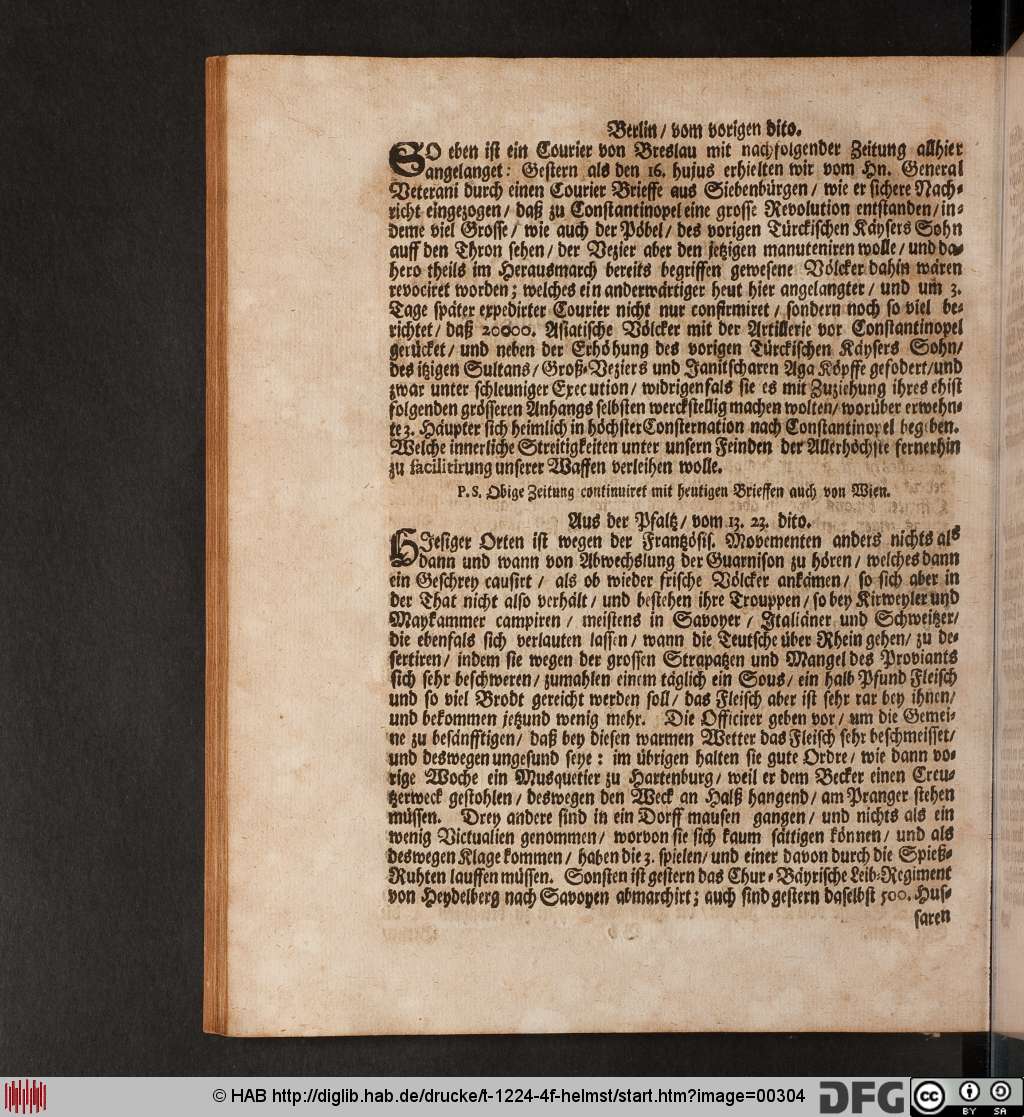 Berlin / vom vorigen dito.
SO eben ist ein Courier von Breslau mit nachfolgender Zeitung allhier
angelanget: Gestern als den 16. hujus erhielten wir vom Hn. General
Veterani durch einen Courier Brieffe aus Siebenbürgen / wie er sichere Nach-
richt eingezogen / daß zu Constantinopel eine grosse Revolution entstanden / in-
deme viel Grosse / wie auch der Pöbel / des vorigen Türckischen Käysers Sohn
auff den Thron sehen / der Vezier aber den jetzigen manuteniren wolle / und da-
hero theils im Herausmarch bereits begriffen gewesene Völcker dahin wären
revociret worden; welches ein anderwärtiger heut hier angelangter / und um 3.
Tage später expedirter Courier nicht nur confirmiret / sondern noch so viel be-
richtet / daß 20000. Asiatische Völcker mit der Artillerie vor Constantinopel
gerücket / und neben der Erhöhung des vorigen Türckischen Käysers Sohn/
des itzigen Sultans / Groß-Veziers und Janitscharen Aga Köpffe gefodert/und
zwar unter schleuniger Execution / widrigenfals sie es mit Zuziehung ihres ehist
folgenden grösseren Anhangs selbsten werckstellig machen wolten/ worüber erwehn-
te 3. Häupter sich heimlich in höchster Consternation nach Constantinopel begeben.
Welche innerliche Streitigkeiten unter unsern Feinden der Allerhöchste fernerhin
zu facilitirung unserer Waffen verleihen wolle.
P.S. Obige Zeitung continuiret mit heutigen Brieffen auch von Wien.
Aus der Pfaltz / vom 13. 23. dito.
HIesiger Orten ist wegen der Frantzösis. Movementen anders nichts als
dann und wann von Abwechslung der Guarnison zu hören / welches dann
ein Geschrey causirt / als ob wieder frische Völcker ankämen / so sich aber in
der That nicht also verhält / und bestehen ihre Trouppen / so bey Kirweyler und
Maykammer campiren / meistens in Savoyer / Italiäner und Schweitzer/
die ebenfals sich verlauten lassen / wann die Teutsche über Rhein gehen/ zu de-
sertiren / indem sie wegen der grossen Strapatzen und Mangel des Proviants
sich sehr beschweren / zumahlen einem täglich ein Sous / ein halb Pfund Fleisch
und so viel Brodt gereicht werden soll / das Fleisch aber ist sehr rar bey ihnen/
und bekommen jetzund wenig mehr. Die Officirer geben vor / um die Gemei-
ne zu besänfftigen / daß bey diesen warmen Wetter das Fleisch sehr beschmeisset/
und deswegen ungesund seye : im übrigen halten sie gute Ordre / wie dann vo-
rige Woche ein Musquetier zu Hartenburg / weil er dem Becker einen Creu-
tzerweck gestohlen / deswegen den Weck an Halß hangend / am Pranger stehen
müssen. Drey andere sind in ein Dorff mausen gangen / und nichts als ein
wenig Victualien genommen / worvon sie sich kaum sättigen können / und als
deswegen Klage kommen / haben die 3. spielen/ und einer davon durch die Spieß-
Ruhten lauffen müssen. Sonsten ist gestern das Chur-Bäyrische Leib-Regiment
von Heydelberg nach Savoyen abmarchirt; auch sind gestern daselbst 500. Hus-
saren
© HAB http://diglib.hab.de/drucke/t-1224-4f-helmst/start.htm?image=00304
DFG
cc BY SA